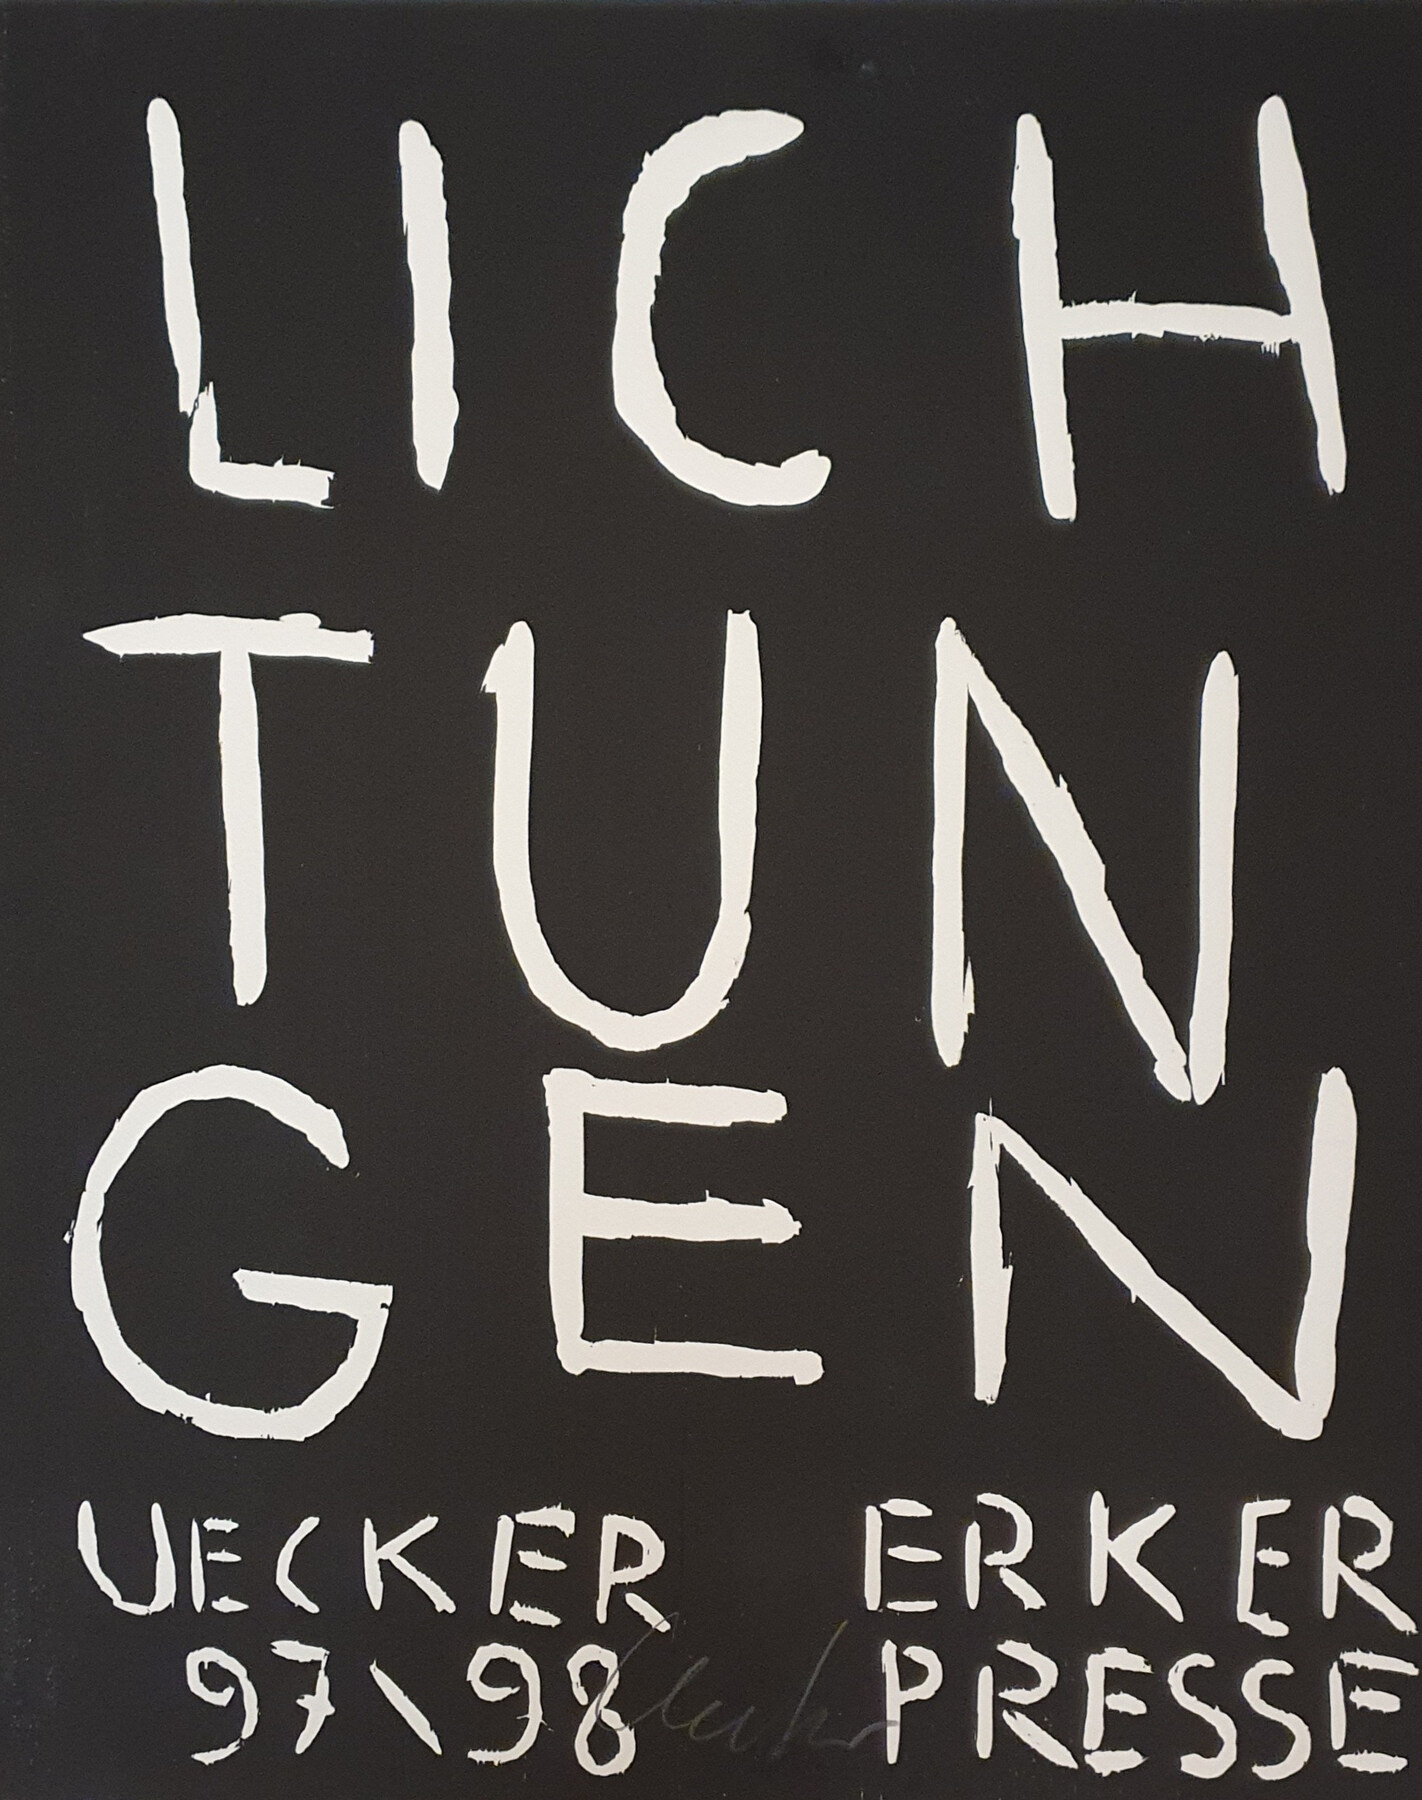 LICH
TUN
GEN
UECKER ERKER
97\98 PRESSE